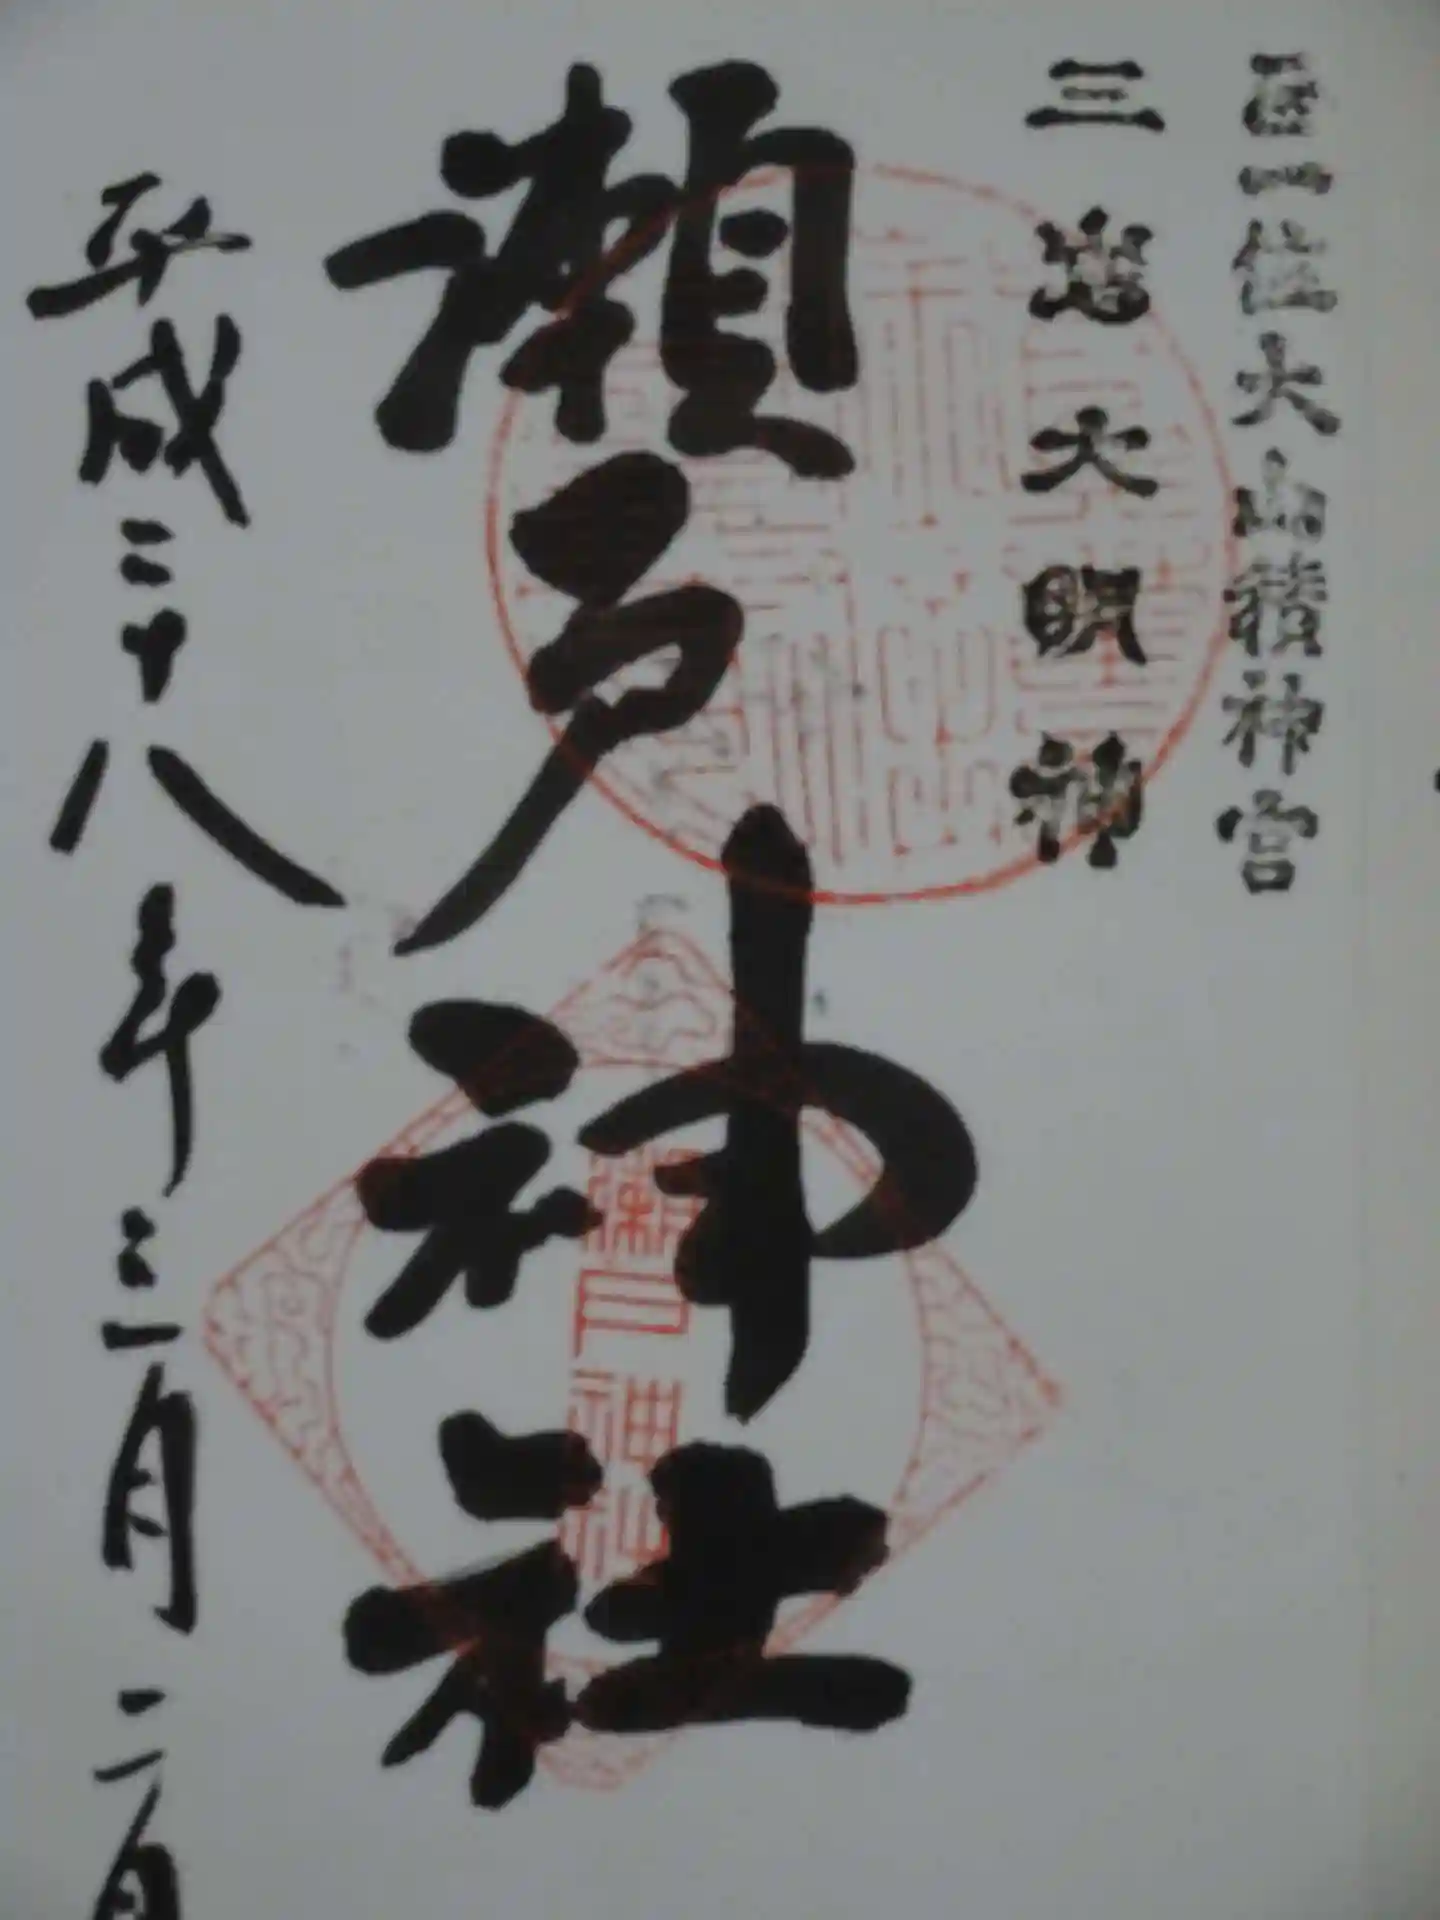 正一位大山積神宮
三島大明神
瀬戸神社
平成二十八年三月二日